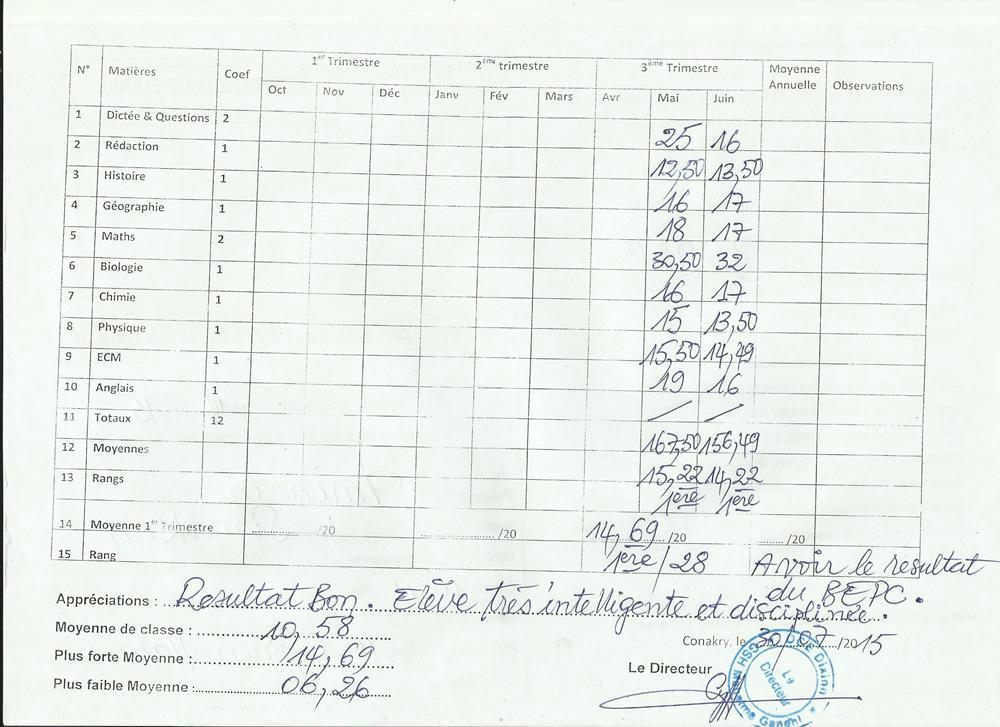 N° Matières Coef 1er Trimestre 2ème trimestre 3ème Trimestre Moyenne Annuelle Observations
Oct Nov Déc Janv Fév Mars Avr Mai Juin
1 Dictée & Questions 2 25 16
2 Rédaction 1 12,50 13,50
3 Histoire 1 16 17
4 Géographie 1 18 17
5 Maths 2 30,50 32
6 Biologie 1 16 17
7 Chimie 1 15 13,50
8 Physique 1 15,50 14,49
9 ECM 1 19 16
10 Anglais 1 / /
11 Totaux 12 167,50 156,49
12 Moyennes 15,22 14,22
13 Rangs 1ère 1ère
14 Moyenne 1er Trimestre ............... /20 ............... /20 14,69 /20 ........ /20
15 Rang 1ère/28 Avoir le resultat
du BEPC.
Appréciations : Resultat Bon. Elève très intelligente et disciplinée.
Moyenne de classe : 10,58
Conakry, le 30/07/2015
Plus forte Moyenne : 14,69
Le Directeur
Plus faible Moyenne : 06,26
DCE Dixinn GSH Gandhi
Le Directeur